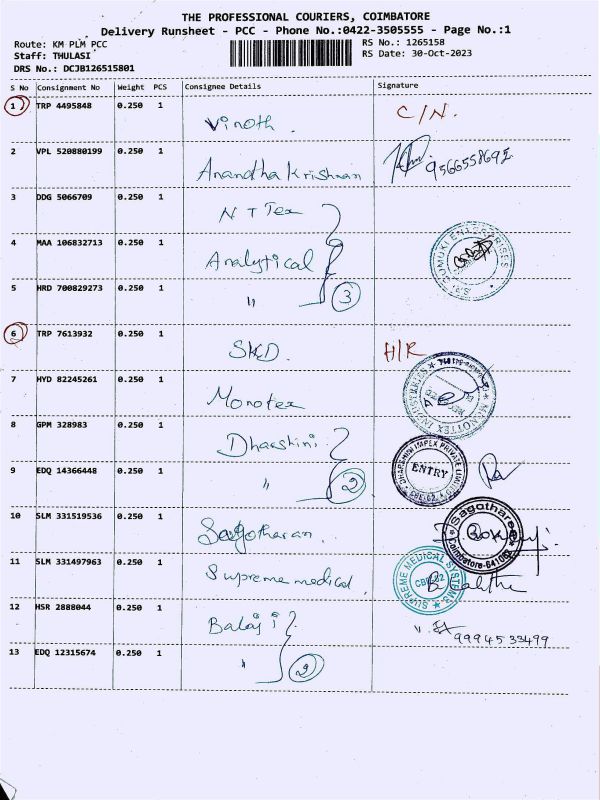 THE PROFESSIONAL COURIERS, COIMBATORE
Delivery Runsheet - PCC - Phone No.:0422-3505555 - Page No.:1
Route: KM PLM PCC
Staff: THULASI
DRS No.: DCJB126515801
RS No.: 1265158
RS Date: 30-Oct-2023
S No Consignment No Weight PCS Consignee Details Signature
1 TRP 4495848 0.250 1 Vinoth C/N.
2 VPL 520880199 0.250 1 Anandha Krishnan 9566558695
3 DDG 5066709 0.250 1 N T Tex
4 MAA 106832713 0.250 1 Analytical
SRI SUMUKI ENTERPRISES
5 HRD 700829273 0.250 1 " 3
6 TRP 7613932 0.250 1 SKD. H/R
7 HYD 82245261 0.250 1 Monotex
8 GPM 328983 0.250 1 Dharshini
DHARSHINI IMPEX PRIVATE LIMITED
ENTRY
9 EDQ 14366448 0.250 1 " 2
10 SLM 331519536 0.250 1 Sagotharan.
Sagotharee
Coimbatore-641062
11 SLM 331497963 0.250 1 Supreme medical.
SUPREME MEDICAL SYSTEMS
12 HSR 2888044 0.250 1 Balaji
9994533499
13 EDQ 12315674 0.250 1 " 2